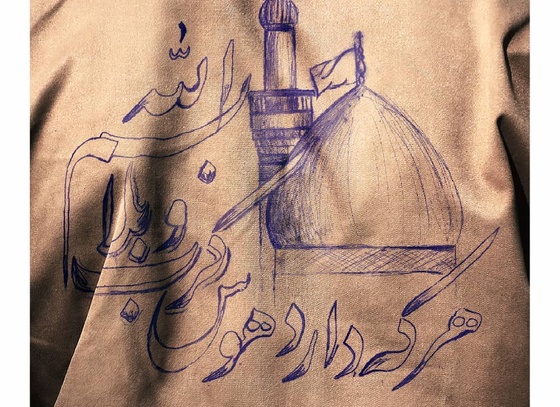 هر که دارد هوس
کرب و بلا
بسم الله